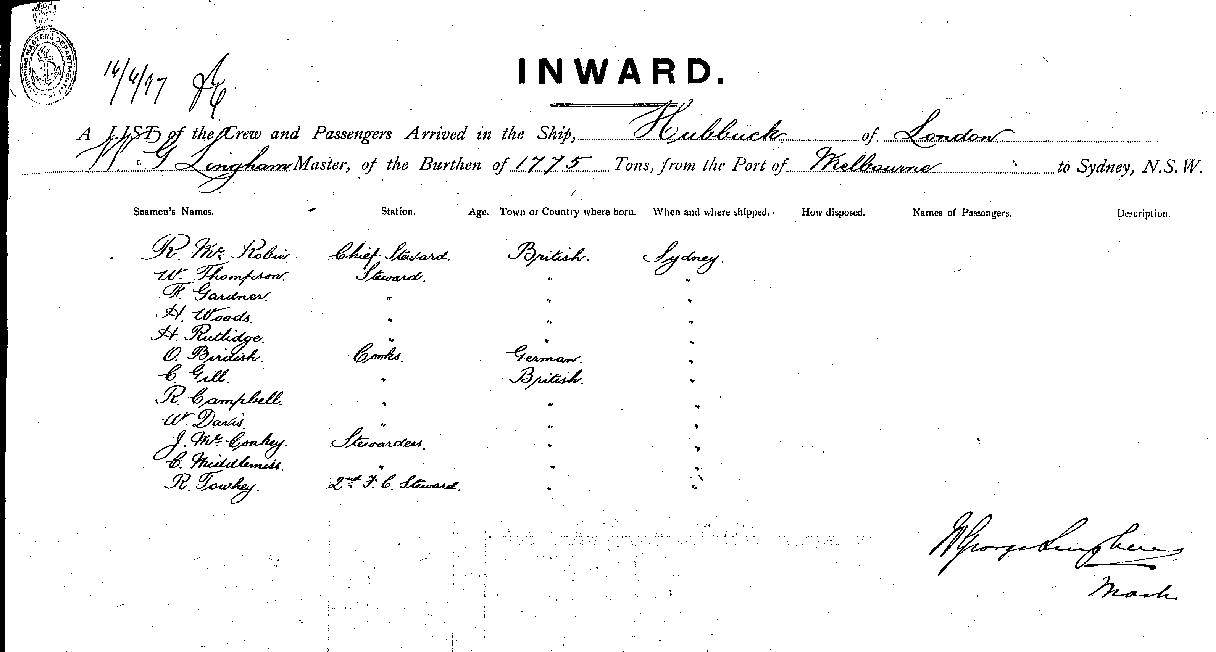 INWARD.
16/4/97
A LIST of the Crew and Passengers Arrived in the Ship, Hubbuck of London
W. G Lingham Master, of the Burthen of 1775 Tons, from the Port of Melbourne to Sydney, N.S.W.
Seamen's Names. Station. Age. Town or Country where born. When and where shipped. How disposed. Names of Passengers. Description.
R. Mc Robin Chief Steward. British. Sydney.
W. Thompson. Steward. " "
F. Gardner. " " "
H. Woods. " " "
H. Rutlidge. " " "
O. Birdish. Cooks. German. "
C Gill. " British. "
R. Campbell. " " "
W. Davis. " " "
J. Mc Conkey. Stewardess. " "
C. Middlemiss. " " "
R. Towkey. 2nd F. C. Steward. " "
W George Lingham
Mash